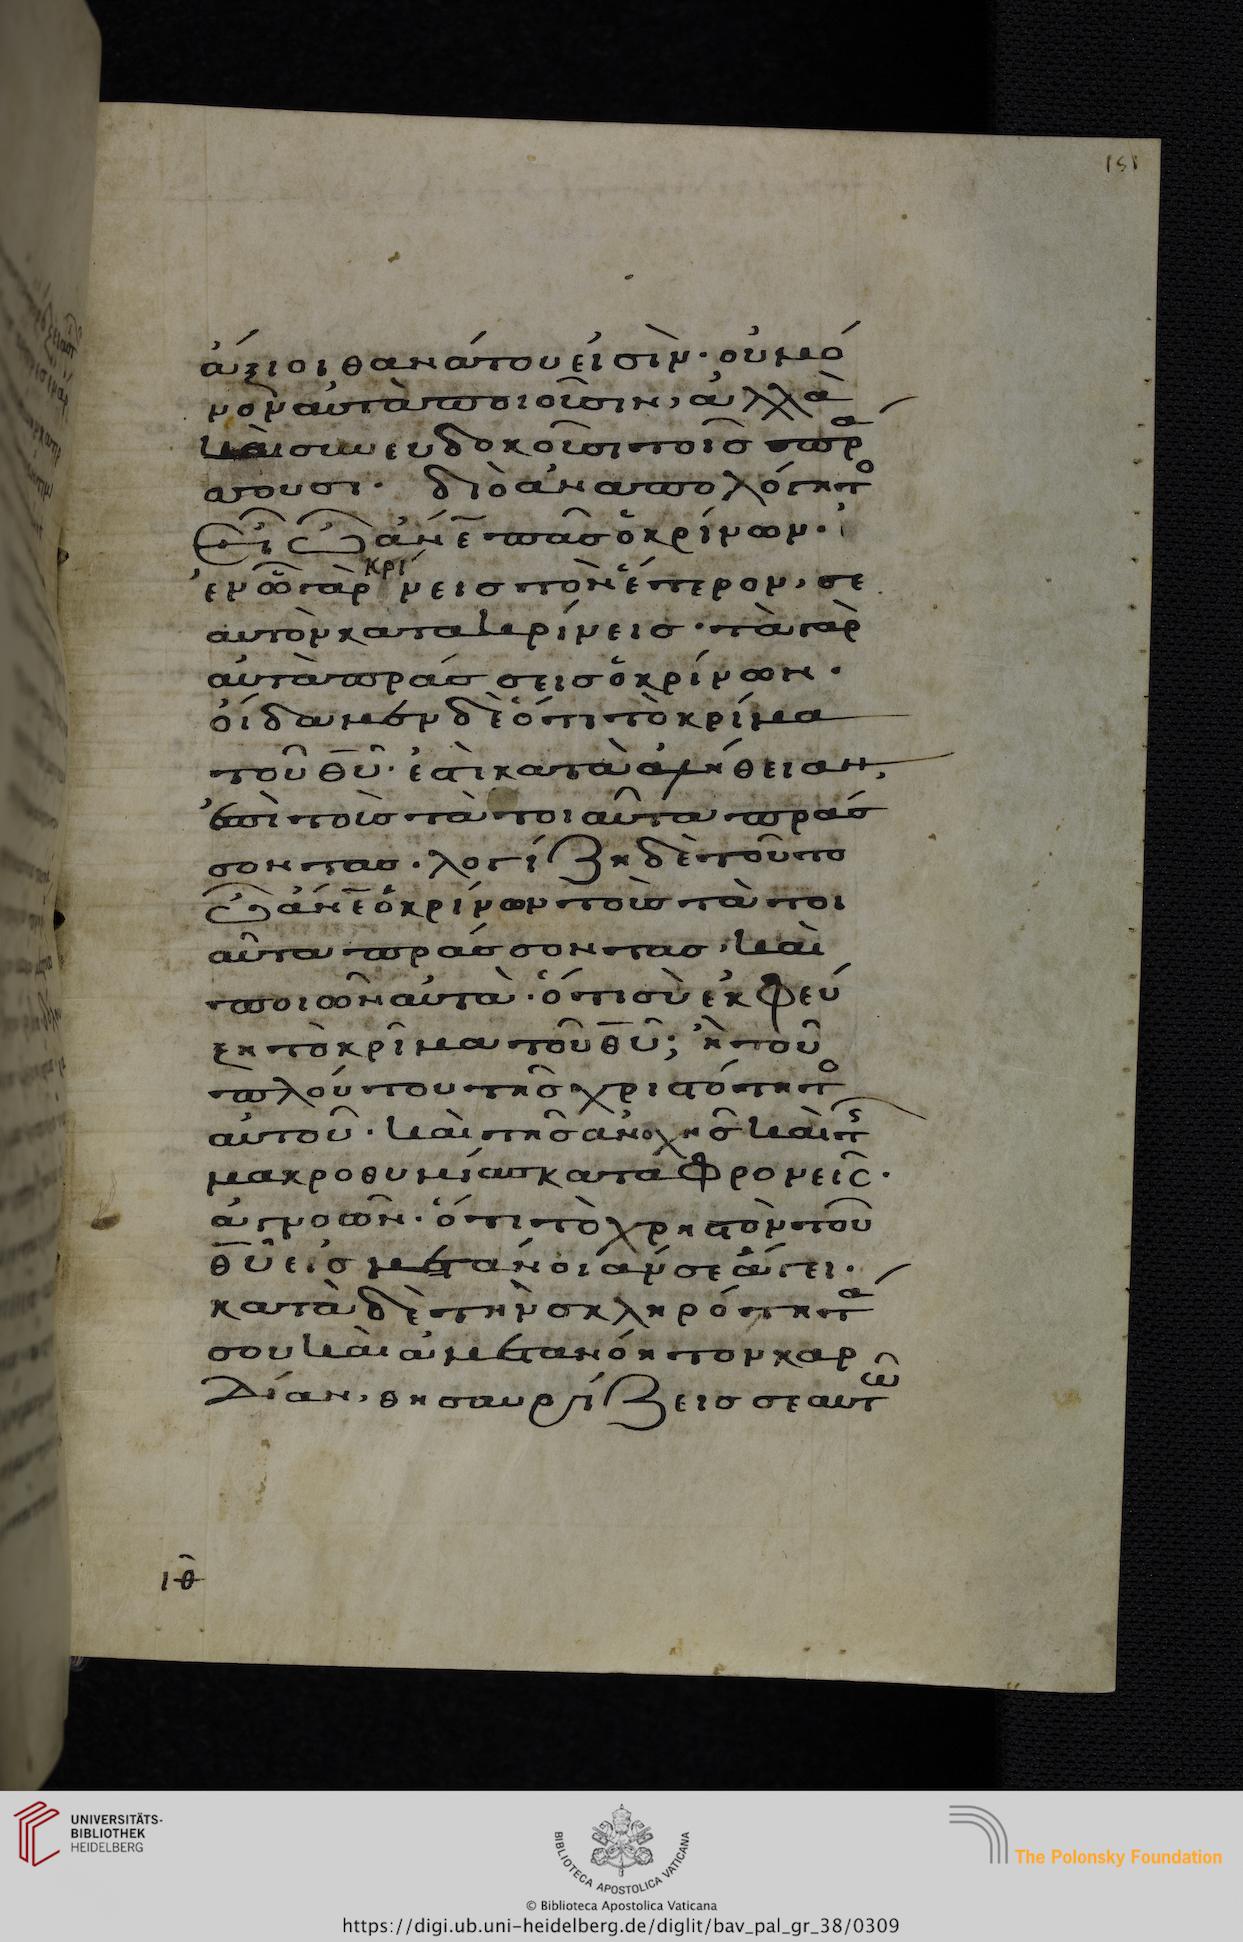 151
ἄξιοι θανάτου εἰσὶν· οὐ μό
νον αὐτὰ ποιοῦσιν, ἀλλὰ
καὶ συνευδοκοῦσι τοῖς πρα
σσουσι· διὸ ἀναπολόγητο
εἶ ὦ ἄνε πᾶς ὁ κρίνων·
ἐν ᾧ γὰρ κρίνεις τὸν ἕτερον, σε
αυτὸν κατακρίνεις· τὰ γὰρ
αὐτὰ πράσσεις ὁ κρίνων·
οἴδαμεν δὲ ὅτι τὸ κρίμα
τοῦ θυ· ἐστὶ κατὰ ἀλήθειαν,
ἐπὶ τοὺς τὰ τοιαῦτα πράσ
σοντας· λογίζη δὲ τοῦτο
ὦ ἄνε ὁ κρίνων τοὺς τὰ τοι
αῦτα πράσσοντας, καὶ
ποιῶν αὐτὰ· ὅτι σὺ ἐκφεύ
ξη τὸ κρῖμα τοῦ θυ; ἢ τοῦ
πλούτου τῆς χριστότητο
αὐτοῦ· καὶ τῆς ἀνοχῆς καὶ τς
μακροθυμίας καταφρονεῖς·
ἀγνοῶν· ὅτι τὸ χρηστὸν τοῦ
θυ εἰς μετάνοιάν σε ἄγει·
κατὰ δὲ τὴν σκληρότητα
σου καὶ ἀμετανόητον καρ
δίαν, θησαυρίζεις σεαυτῶ
ιθ
UNIVERSITÄTS-
BIBLIOTHEK
HEIDELBERG
BIBLIOTECA APOSTOLICA VATICANA
The Polonsky Foundation
© Biblioteca Apostolica Vaticana
https://digi.ub.uni-heidelberg.de/diglit/bav_pal_gr_38/0309